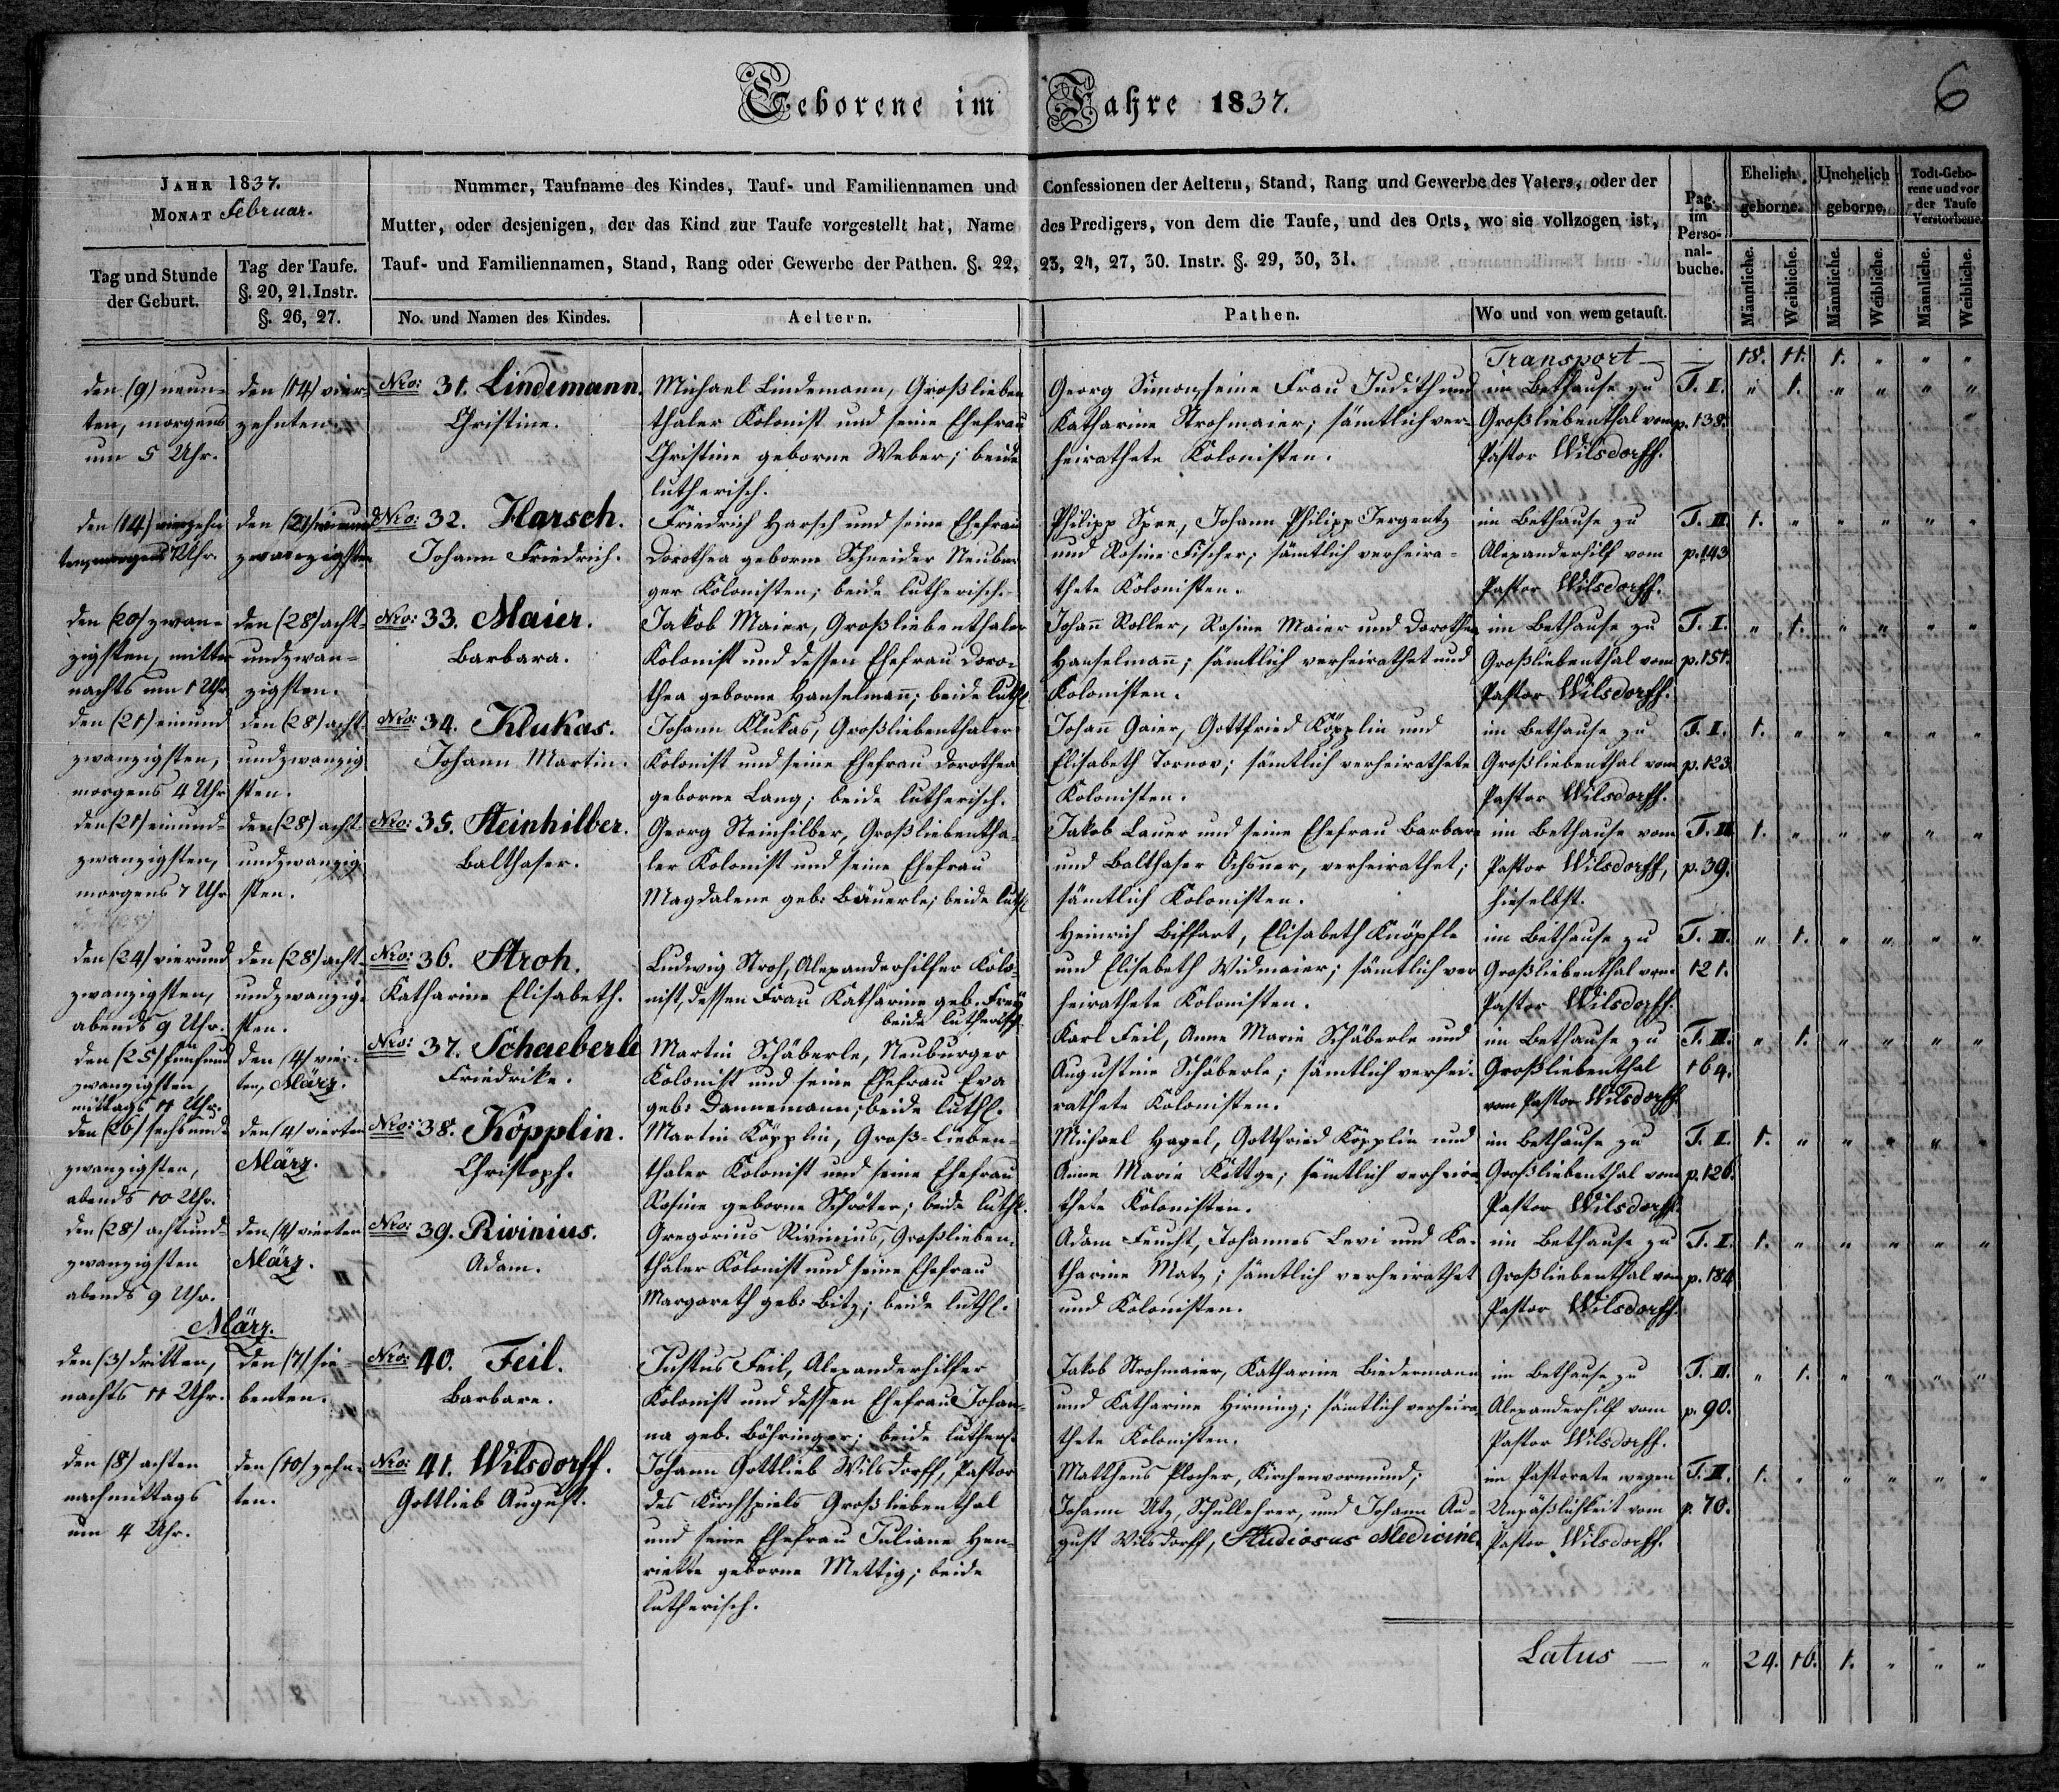 6
Geborene im Jahre 1837.
JAHR 1837.
MONAT Februar.
Tag und Stunde
der Geburt.
Tag der Taufe.
§. 20, 21. Instr.
§. 26, 27.
Nummer, Taufname des Kindes, Tauf- und Familiennamen und Confessionen der Aeltern, Stand, Rang und Gewerbe des Vaters, oder der
Mutter, oder desjenigen, der das Kind zur Taufe vorgestellt hat, Name des Predigers, von dem die Taufe, und des Orts, wo sie vollzogen ist,
Tauf- und Familiennamen, Stand, Rang oder Gewerbe der Pathen. §. 22, 23, 24, 27, 30. Instr. §. 29, 30, 31.
No. und Namen des Kindes.
Aeltern.
Pathen.
Wo und von wem getauft.
Pag.
im
Perso-
nal-
buche.
Ehelich
geborne.
Unehelich
geborne.
Todt-Gebo-
rene und vor
der Taufe
Verstorbene.
Männliche. Weibliche. Männliche. Weibliche. Männliche. Weibliche.
Transport — — 18. 11. 1. " " "
den (9) neun-
ten, morgens
um 5 Uhr.
den (14) vier-
zehnten.
Nro: 31. Lindemann.
Christine.
Michael Lindemann, Großlieben
thaler Kolonist und seine Ehefrau
Christine geborne Weber; beide
lutherisch.
Georg Simon, seine Frau Judith und
Katharine Strohmaier; sämtlich ver-
heirathete Kolonisten.
im Bethause zu
Großliebenthal vom
Pastor Wilsdorff.
T. I.
p. 138.
" 1. " " " "
den (14) vierzehn
ten, morgens 7 Uhr.
den (21) einund
zwanzigsten
Nro: 32. Harsch.
Johann Friedrich.
Friedrich Harsch und seine Ehefrau
Dorothea geborne Schneider Neubur
ger Kolonisten; beide lutherisch.
Philipp Spee, Johann Philipp Jergentz
und Rosine Fischer; sämtlich verheira-
thete Kolonisten.
im Bethause zu
Alexanderhilf vom
Pastor Wilsdorff.
T. II.
p. 143
1. " " " " "
den (20) zwan-
zigsten, mitter
nachts um 1 Uhr
den (28) acht-
undzwan-
zigsten.
Nro: 33. Maier.
Barbara.
Jakob Maier, Großliebenthaler
Kolonist und dessen Ehefrau Doro-
thea geborne Hanselmañ; beide luth.
Johañ Roller, Rosine Maier und Dorothea
Hanselmañ; sämtlich verheirathet und
Kolonisten.
im Bethause zu
Großliebenthal vom
Pastor Wilsdorff.
T. I.
p. 151.
" 1. " " " "
den (21) einund
zwanzigsten,
morgens 4 Uhr
den (28) acht
undzwanzig
sten.
Nro: 34. Klukas.
Johann Martin.
Johann Klukas, Großliebenthaler
Kolonist und seine Ehefrau Dorothea
geborne Lang; beide lutherisch.
Johañ Gaier, Gottfried Köpplin und
Elisabeth Tornov; sämtlich verheirathete
Kolonisten.
im Bethause zu
Großliebenthal vom
Pastor Wilsdorff.
T. I.
p. 123.
1. " " " " "
den (21) einund-
zwanzigsten,
morgens 7 Uhr
den (28) acht
undzwanzig
sten.
Nro: 35. Steinhilber.
Balthaser.
Georg Steinhilber, Großliebentha-
ler Kolonist und seine Ehefrau
Magdalene geb: Bäuerle; beide luth.
Jakob Lauer und seine Ehefrau Barbara
und Balthaser Ochsner, verheirathet;
sämtlich Kolonisten.
im Bethause vom
Pastor Wilsdorff,
hieselbst.
T. III.
p. 39.
1. " " " " "
den (24) vierund
zwanzigsten,
abends 9 Uhr.
den (28) acht-
undzwanzig-
sten.
Nro: 36. Stroh.
Katharine Elisabeth.
Ludwig Stroh, Alexanderhilfer Kolo-
nist, dessen Frau Katharine geb. Frey
beide lutherisch.
Heinrich Biffart, Elisabeth Knöpfle
und Elisabeth Widmaier; sämtlich ver
heirathete Kolonisten.
im Bethause zu
Großliebenthal vom
Pastor Wilsdorff.
T. II.
121.
" 1. " " " "
den (25) fünfund
zwanzigsten,
mittags 11 Uhr.
den (4) vier-
ten, März.
Nro: 37. Schaeberle
Friedrike.
Martin Schäberle, Neuburger
Kolonist und seine Ehefrau Eva
geb: Dannemann; beide luth.
Karl Feil, Anne Marie Schäberle und
Augustine Schäberle; sämtlich verhei-
rathete Kolonisten.
im Bethause zu
Großliebenthal
vom Pastor Wilsdorff
T. II.
164.
" 1. " " " "
den (26) sechsund-
zwanzigsten,
abends 10 Uhr.
den (4) vierten
März.
Nro: 38. Köpplin.
Christoph.
Martin Köpplin, Groß-Lieben-
thaler Kolonist und seine Ehefrau
Rosine geborne Schröter; beide luth.
Michael Hagel, Gottfried Köpplin und
Anne Marie Röttge; sämtlich verheira
thete Kolonisten.
im Bethause zu
Großliebenthal vom
Pastor Wilsdorff.
T. I.
p. 126.
1. " " " " "
den (28) achtund-
zwanzigsten
abends 9 Uhr.
den (4) vierten
März.
Nro: 39. Rivinius.
Adam.
Gregorius Rivinius, Großlieben-
thaler Kolonist und seine Ehefrau
Margareth geb: Bitz; beide luth.
Adam Feucht, Johannes Levi und Ka-
tharine Matz; sämtlich verheirathet
und Kolonisten.
im Bethause zu
Großliebenthal vom
Pastor Wilsdorff.
T. I.
p. 184
1. " " " " "
März.
den (3) dritten,
nachts 11 Uhr.
den (7) sie-
benten.
Nro: 40. Feil.
Barbare.
Justus Feil, Alexanderhilfer
Kolonist und dessen Ehefrau Johan-
na geb. Böhringer; beide luther.
Jakob Strohmaier, Katharine Biedermann
und Katharine Hirning; sämtlich verheira
thete Kolonisten.
im Bethause zu
Alexanderhilf vom
Pastor Wilsdorff.
T. II.
p. 90.
" 1. " " " "
den (8) achten
nachmittags
um 4 Uhr.
den (10) zehn-
ten.
Nro: 41. Wilsdorff.
Gottlieb August.
Johann Gottlieb Wilsdorff, Pastor
des Kirchspiels Großliebenthal
und seine Ehefrau Juliane Hen-
riette geborne Mettig; beide
lutherisch.
Mattheus Plocher, Kirchenvormund;
Johann Utz, Schullehrer, und Johann Au-
gust Wilsdorff, Studiosus Medicinä.
im Pastorate wegen
Unpäßlichkeit vom
Pastor Wilsdorff.
T. II.
p. 70.
1. " " " " "
Latus — " 24. 16. 1. " " "